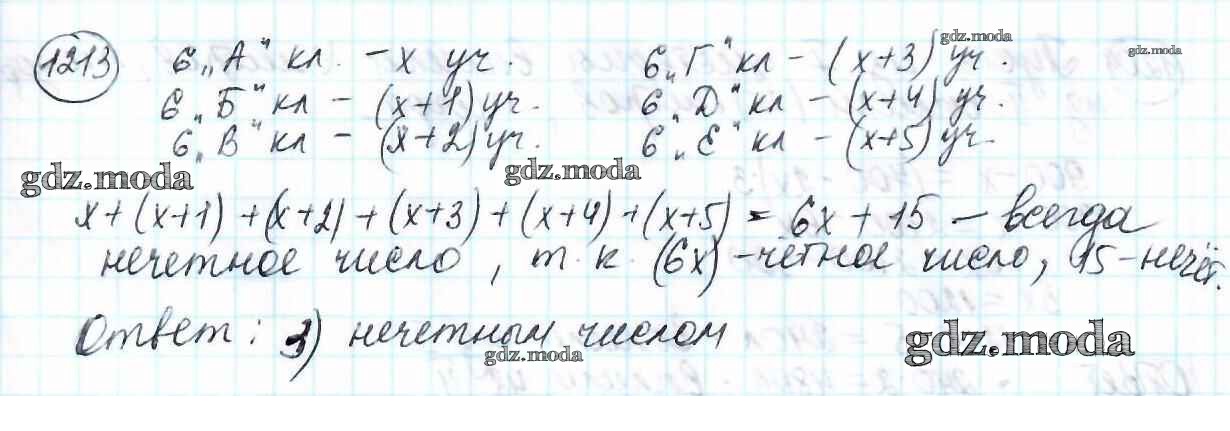 1213
6 „А" кл. - х уч. 6 „Г" кл - (х+3) уч.
6 „Б" кл - (х+1) уч. 6 „Д" кл - (х+4) уч.
6 „В" кл - (х+2) уч. 6 „Е" кл - (х+5) уч.
х + (х+1) + (х+2) + (х+3) + (х+4) + (х+5) = 6х + 15 - всегда
нечетное число, т.к. (6х) - чётное число, 15 - нечёт.
Ответ: 3) нечетным числом
gdz.moda
gdz.moda
gdz.moda
gdz.moda
gdz.moda
gdz.moda